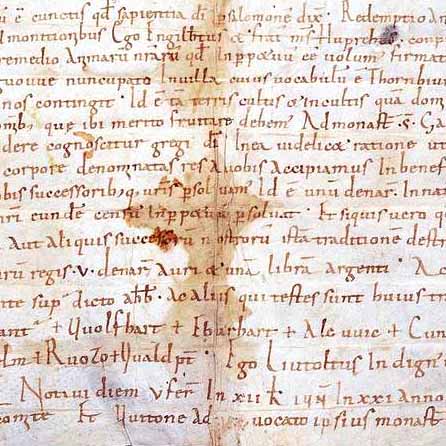 ui ē cunctis qđ sapientia di psalomonē dix̄. Redemptio A
lmonitionibus Ego Engilbtus & frat̄ m̄s Hup
remedio animarū nrarū qđ Inppetuū eē volum̄ firmat
uuoue nuncupato Inuilla cuius vocabulū ē Thornbiu
nos contingit. Id ē tā terris cultis & incultis quā dom
omīb; que ibi merito fruitare debem̄ Admonast̄ .S. Ga
dere cognoscitur gregi di. Inea videlic& ratione ut
corpore denominatas res auobis Accipiamus Inbenef
obis successorib;q; uris psoluam̄ Id ē unū denar̄. Inna
nri eundē censū Inppetuū psoluat. Et siquis uero
Aut aliquis successorū nostrorū istā traditionē dest
rū regis .v. denar̄ Auri & unā librā argenti. A
nte sup dicto abb̄. Ac alius qui testes sunt huius t
ant + Wolfhart + Ebarhart + Alcuuic + Cun
elm + Ruozo + Waldpt. Ego Liutoltus In dign
Notaui diem vFer̄ In XII K IUN̄ In XXI Anno
comite Et Wttone Ad uocato ipsius monast